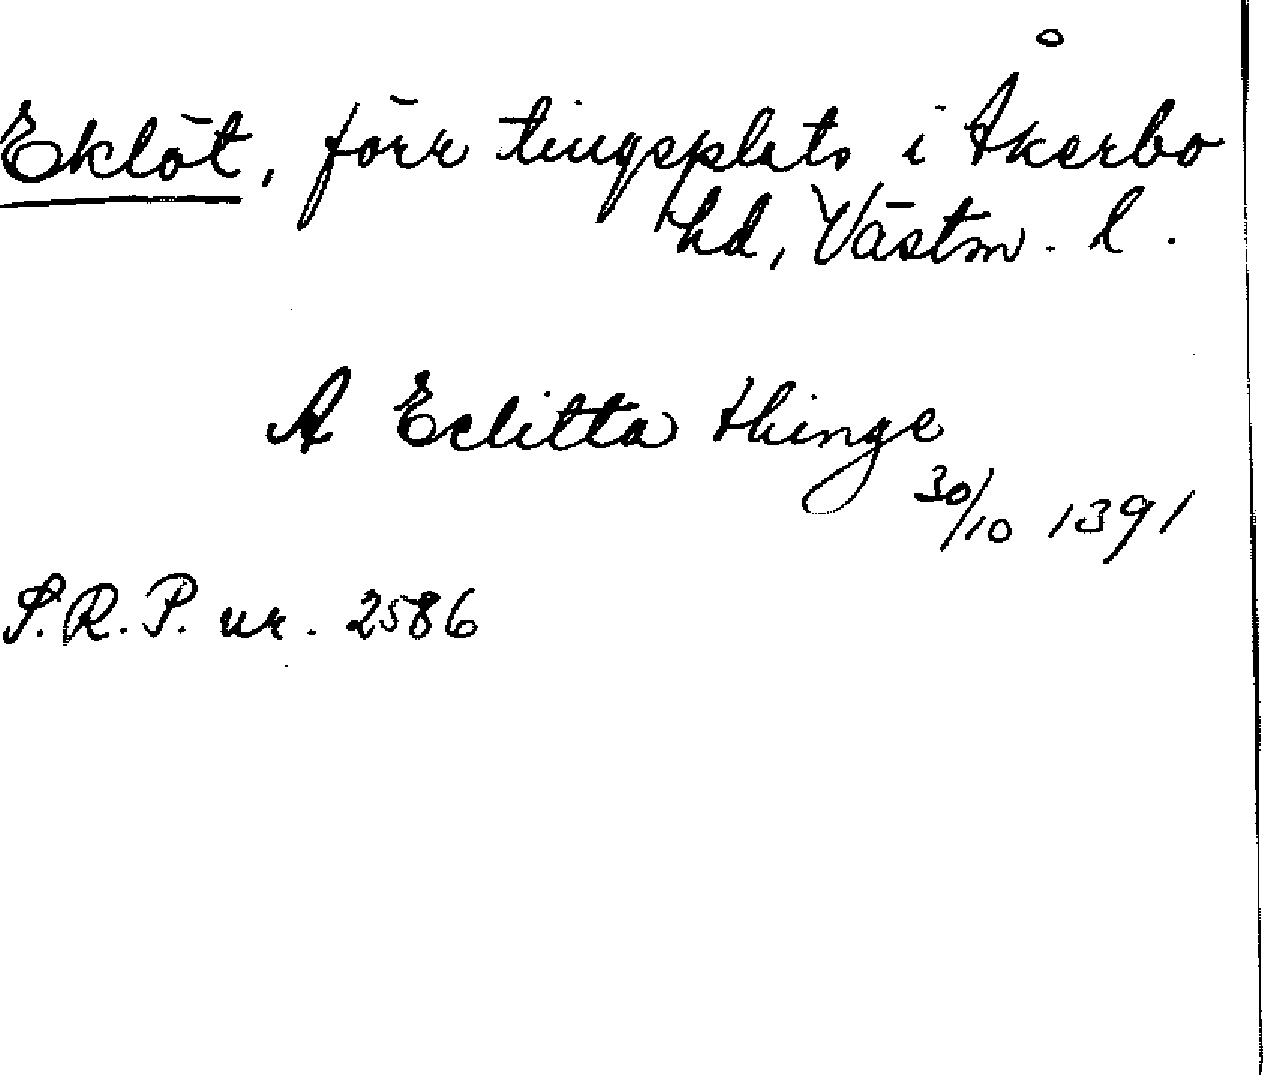 Eklöt, förr tingsplats i Åkerbo
hd, Västm. l.
A Eclitta thinge
30/10 1391
S.R.P. nr. 2586